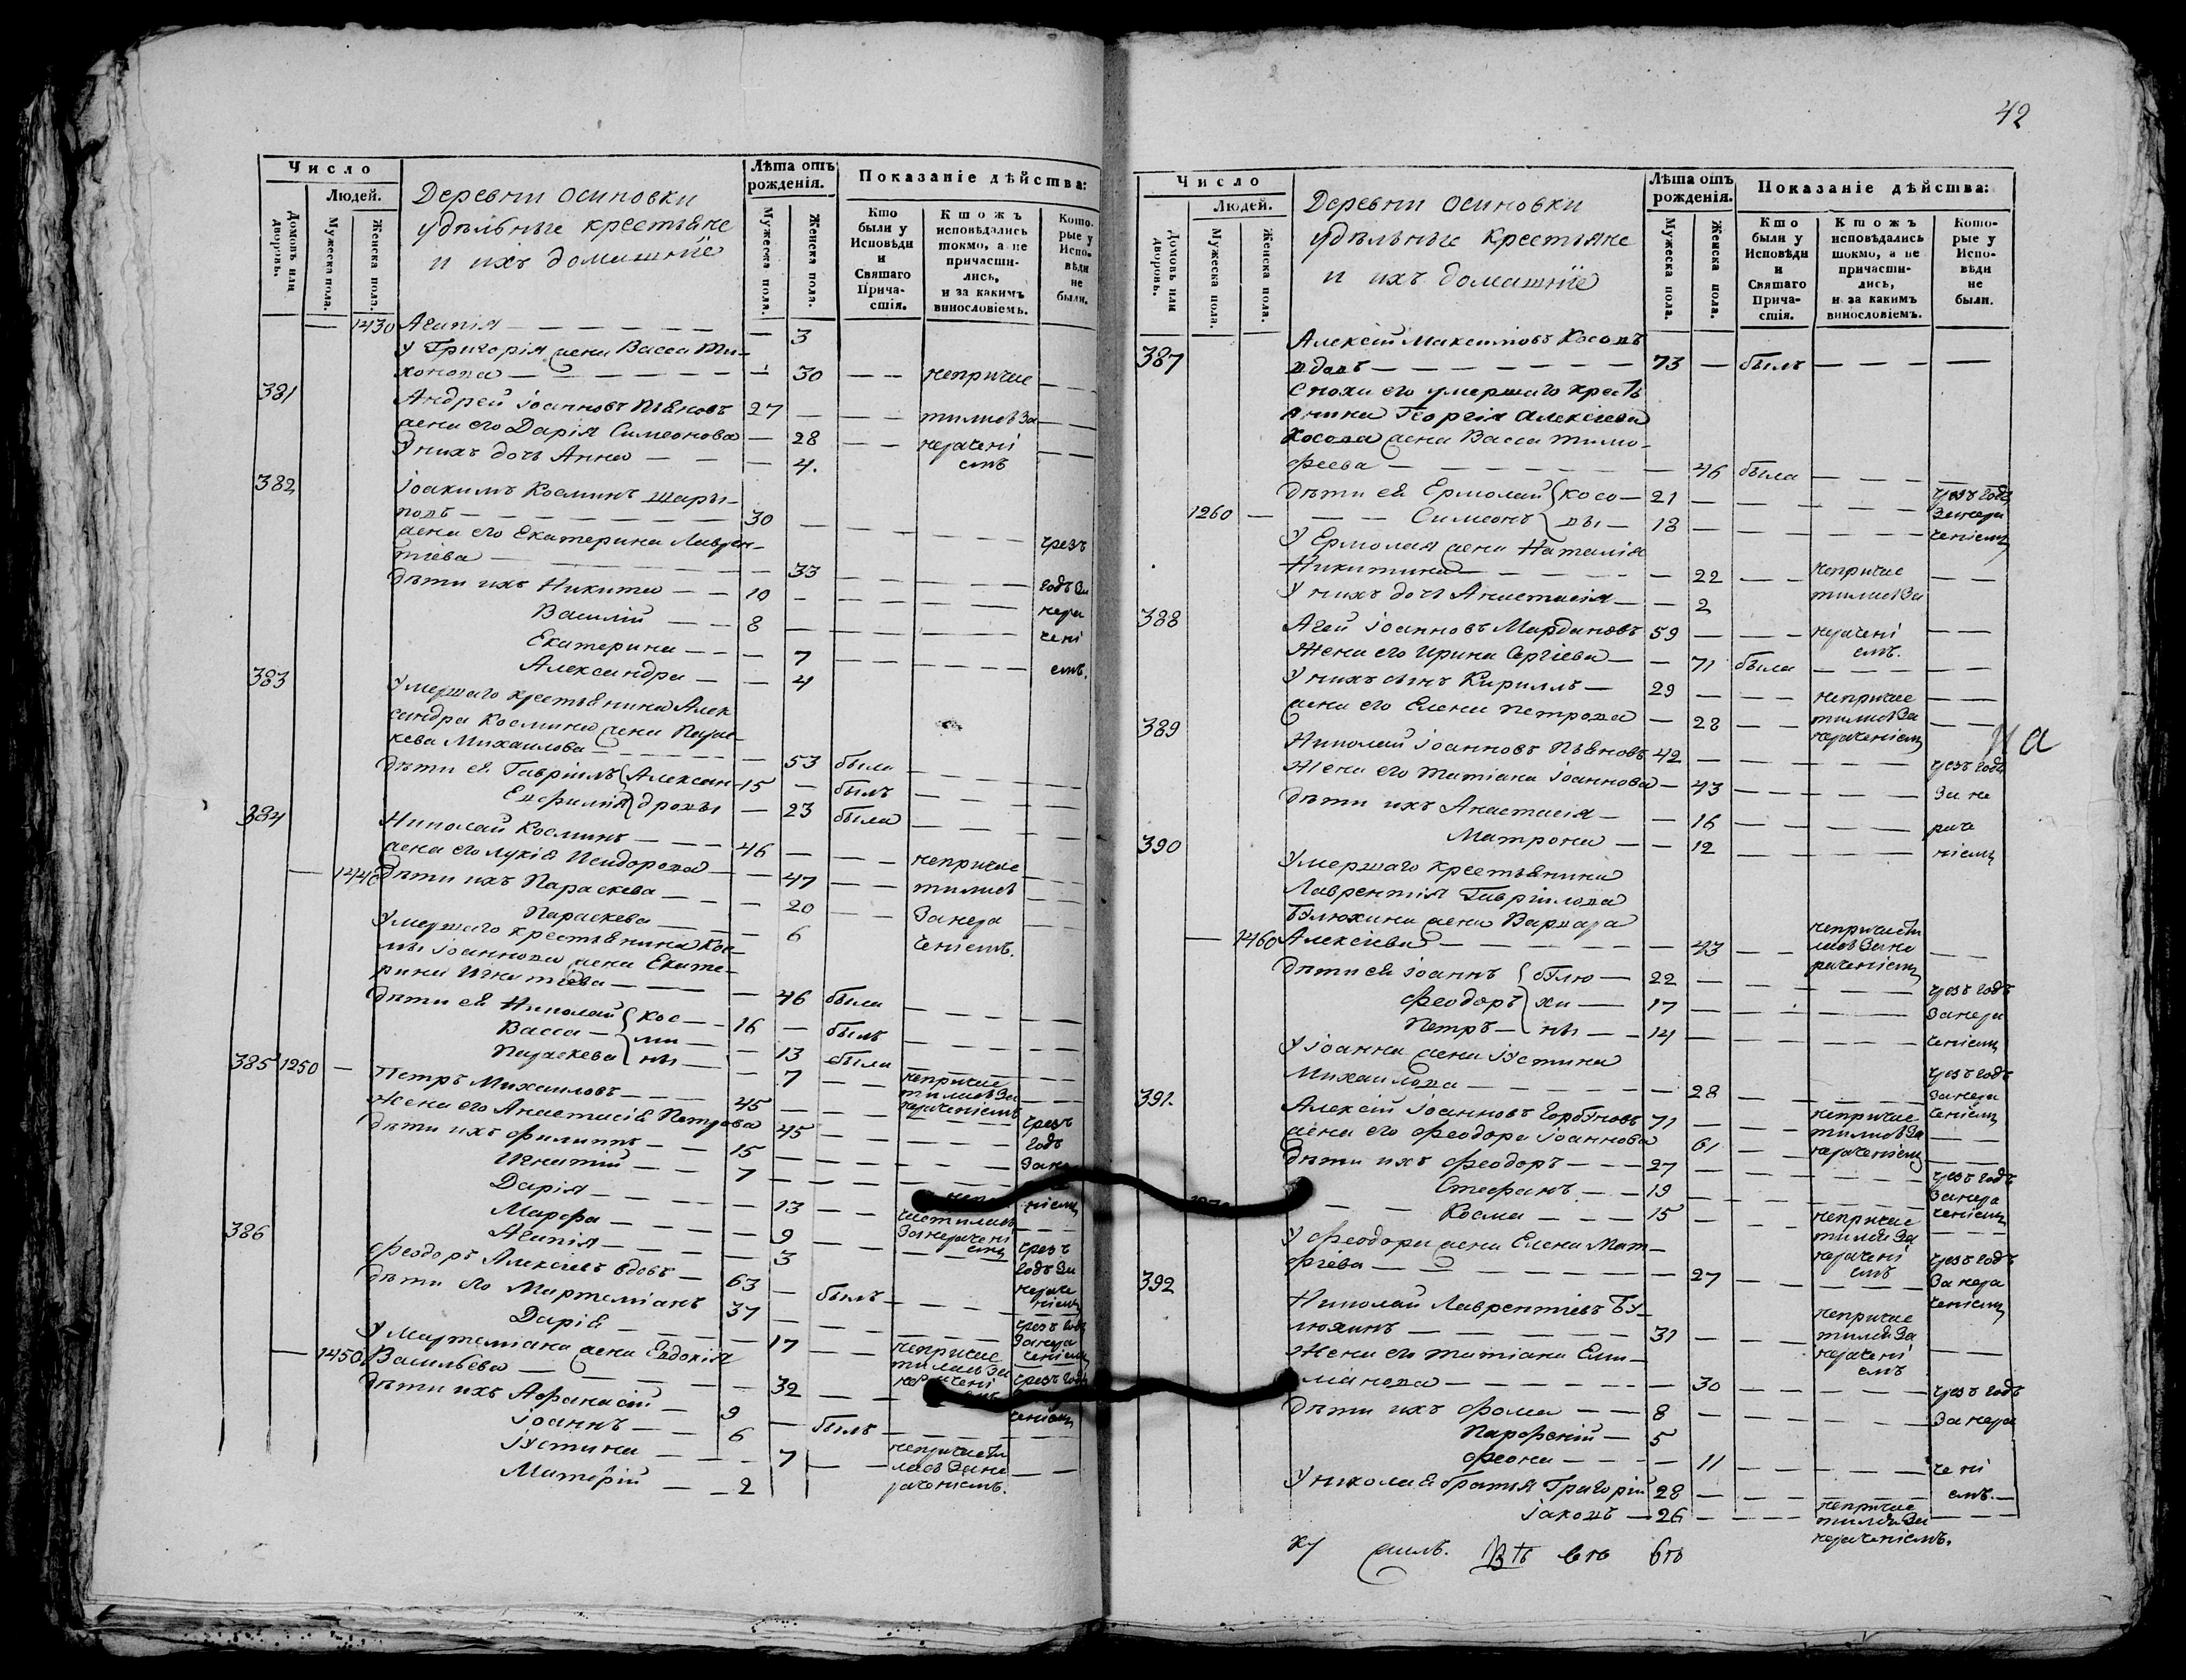 Число
Людей.
Домовъ или дворовъ.
Мужеска пола.
Женска пола.
Деревни Осиновки
удѣльные крестьяне
и ихъ домашніе
Лѣта отъ рожденія.
Мужеска пола.
Женска пола.
Показаніе дѣйства:
Кто были у Исповѣди и Святаго Причастія.
Ктожъ исповѣдались токмо, а не причастились, и за какимъ винословіемъ.
Которые у Исповѣди не были.
— 1430 Агапія — — 3
У Григорія жена Васса Ти-
хонова — — 30 — — непричас
381
Андрей Іоанновъ Пьяновъ 27 — — — тились за — —
жена его Дарія Симеонова — 28 — — нераченi — —
У нихъ дочь Анна — — 4. емъ
382
Іоакимъ Косминъ Шары-
повъ — 30 — — —
жена его Екатерина Лаврен- чрезъ
тіева — — 33 — — — —
дѣти ихъ Никита — 10 — — — — годъ за
Василій — 8 — — — — нера
Екатерина — — 7 — — — — чені
Александра — — 4 — — — — емъ.
383
Умершаго крестьянина Алек
сандра Космина жена Парас-
кева Михаилова — — 53 была — — —
дѣти ея Гавріилъ Алексан- 15 — былъ — — —
Евфимія дровы — 23 была — — —
384
Николай Косминъ — 46 — — —
жена его Лукія Исидорова — 47 — — непричас
— 1440 дѣти ихъ Параскева — — 20 — — тились
Параскева — — 6 за нера
Умершаго крестьянина Кос- ченіемъ.
мы Іоаннова жена Екате-
рина Игнатіева — — 46 была — — —
дѣти ея Николай Кос— 16 — былъ — — —
Васса — ми— — 13 была — — —
Параскева ны — — 7 — — непричас
385 1250 —
Петръ Михаиловъ — 45 — — — тились за
нераченіемъ
Жена его Анастасія Петрова 45 — — — чрезъ
дѣти ихъ Филиппъ — 15 — — — годъ
Игнатій — 7 — — — за не
Дарія — — 13 — — ніемъ
Марфа — — 9 частились
Агапія — — 3 за нерачені
емъ чрезъ
386
Феодоръ Алексіевъ вдовъ — 63 — былъ — годъ за
нераче
ніемъ
дѣти его Мартеміанъ 37 — — — чрезъ годъ
Дарія — — 17 — — непричас за нера
ченіемъ
У Мартеміана жена Евдокія тились за
— 1450 Васильева — — 32 — — нерачені чрезъ годъ
дѣти ихъ Афанасій — 9 — былъ — — ченіемъ
Іоаннъ — 6
Іустина — — 7 непричасти
лась за не — —
Матѳій — 2 раченіемъ.
42
Число
Людей.
Домовъ или дворовъ.
Мужеска пола.
Женска пола.
Деревни Осиновки
удѣльные крестьяне
и ихъ домашніе
Лѣта отъ рожденія.
Мужеска пола.
Женска пола.
Показаніе дѣйства:
Кто были у Исповѣди и Святаго Причастія.
Ктожъ исповѣдались токмо, а не причастились, и за какимъ винословіемъ.
Которые у Исповѣди не были.
387
Алексій Максимовъ Косовъ
вдовъ — 73 — былъ — —
Сноха его умершаго кресть
янина Георгія Алексіева
Косова жена Васса Тимо-
феева — — 46 была — — —
дѣти ея Ермолай Косо— 21 — — чрезъ годъ
1260 — — — Симеонъ вы — 18 — — — за нера
ченіемъ
У Ермолая жена Наталія
Никитина — — 22 — — непричас — —
У нихъ дочь Анастасія — — 2 тились за
388
Агей Іоанновъ Мардановъ 59 — — — нерачені — —
Жена его Ирина Сергіева — — 71 была емъ. — —
У нихъ сынъ Кириллъ — 29 — — — непричас —
жена его Елена Петрова — 28 — — тились за — —
389 нераченіемъ
Николай Іоанновъ Пьяновъ 42 — — — чрезъ годъ
Жена его Татіана Іоаннова — 43 — — — за не
дѣти ихъ Анастасія — — 16 — — — раче
Матрона — — 12 — — — ніемъ
390
Умершаго крестьянина
Лаврентія Гавріилова
Булюхина жена Варвара непричасти
— 1460 Алексіева — — 43 — — лась за не — —
раченіемъ
дѣти ея Іоаннъ Булю— 22 — — — чрезъ годъ
Феодоръ хи — 17 — — — за нера
Петръ — ны — 14 — — — ченіемъ
У Іоанна жена Іустина чрезъ годъ
Михаилова — — 28 за нера
391.
Алексій Іоанновъ Горбуновъ 71 — — — непричас ченіемъ
жена его Феодора Іоаннова 61 — — тились за — —
нераченіемъ
дѣти ихъ Феодоръ — 27 — — — чрезъ годъ
Стефанъ — 19 — — — за нера
Косма — 15 — — — непричас ченіемъ
тились за
У Феодора жена Елена Мат- нерачені чрезъ годъ
фіева — — 27 — емъ за нера
392 ченіемъ
Николай Лаврентіевъ Бу- непричас
люхинъ — 31 — — — тились за
Жена его Татіана Еми- нерачені — —
ліанова — — 30 — — емъ чрезъ годъ
дѣти ихъ Фома — 8 — — — за нера
Парфеній — 5
Феона — — 11 — — — чені
У Николая братья Григорій 28 — — — емъ. —
Іаковъ — 26 — — — непричас
тились за
нераченіемъ.